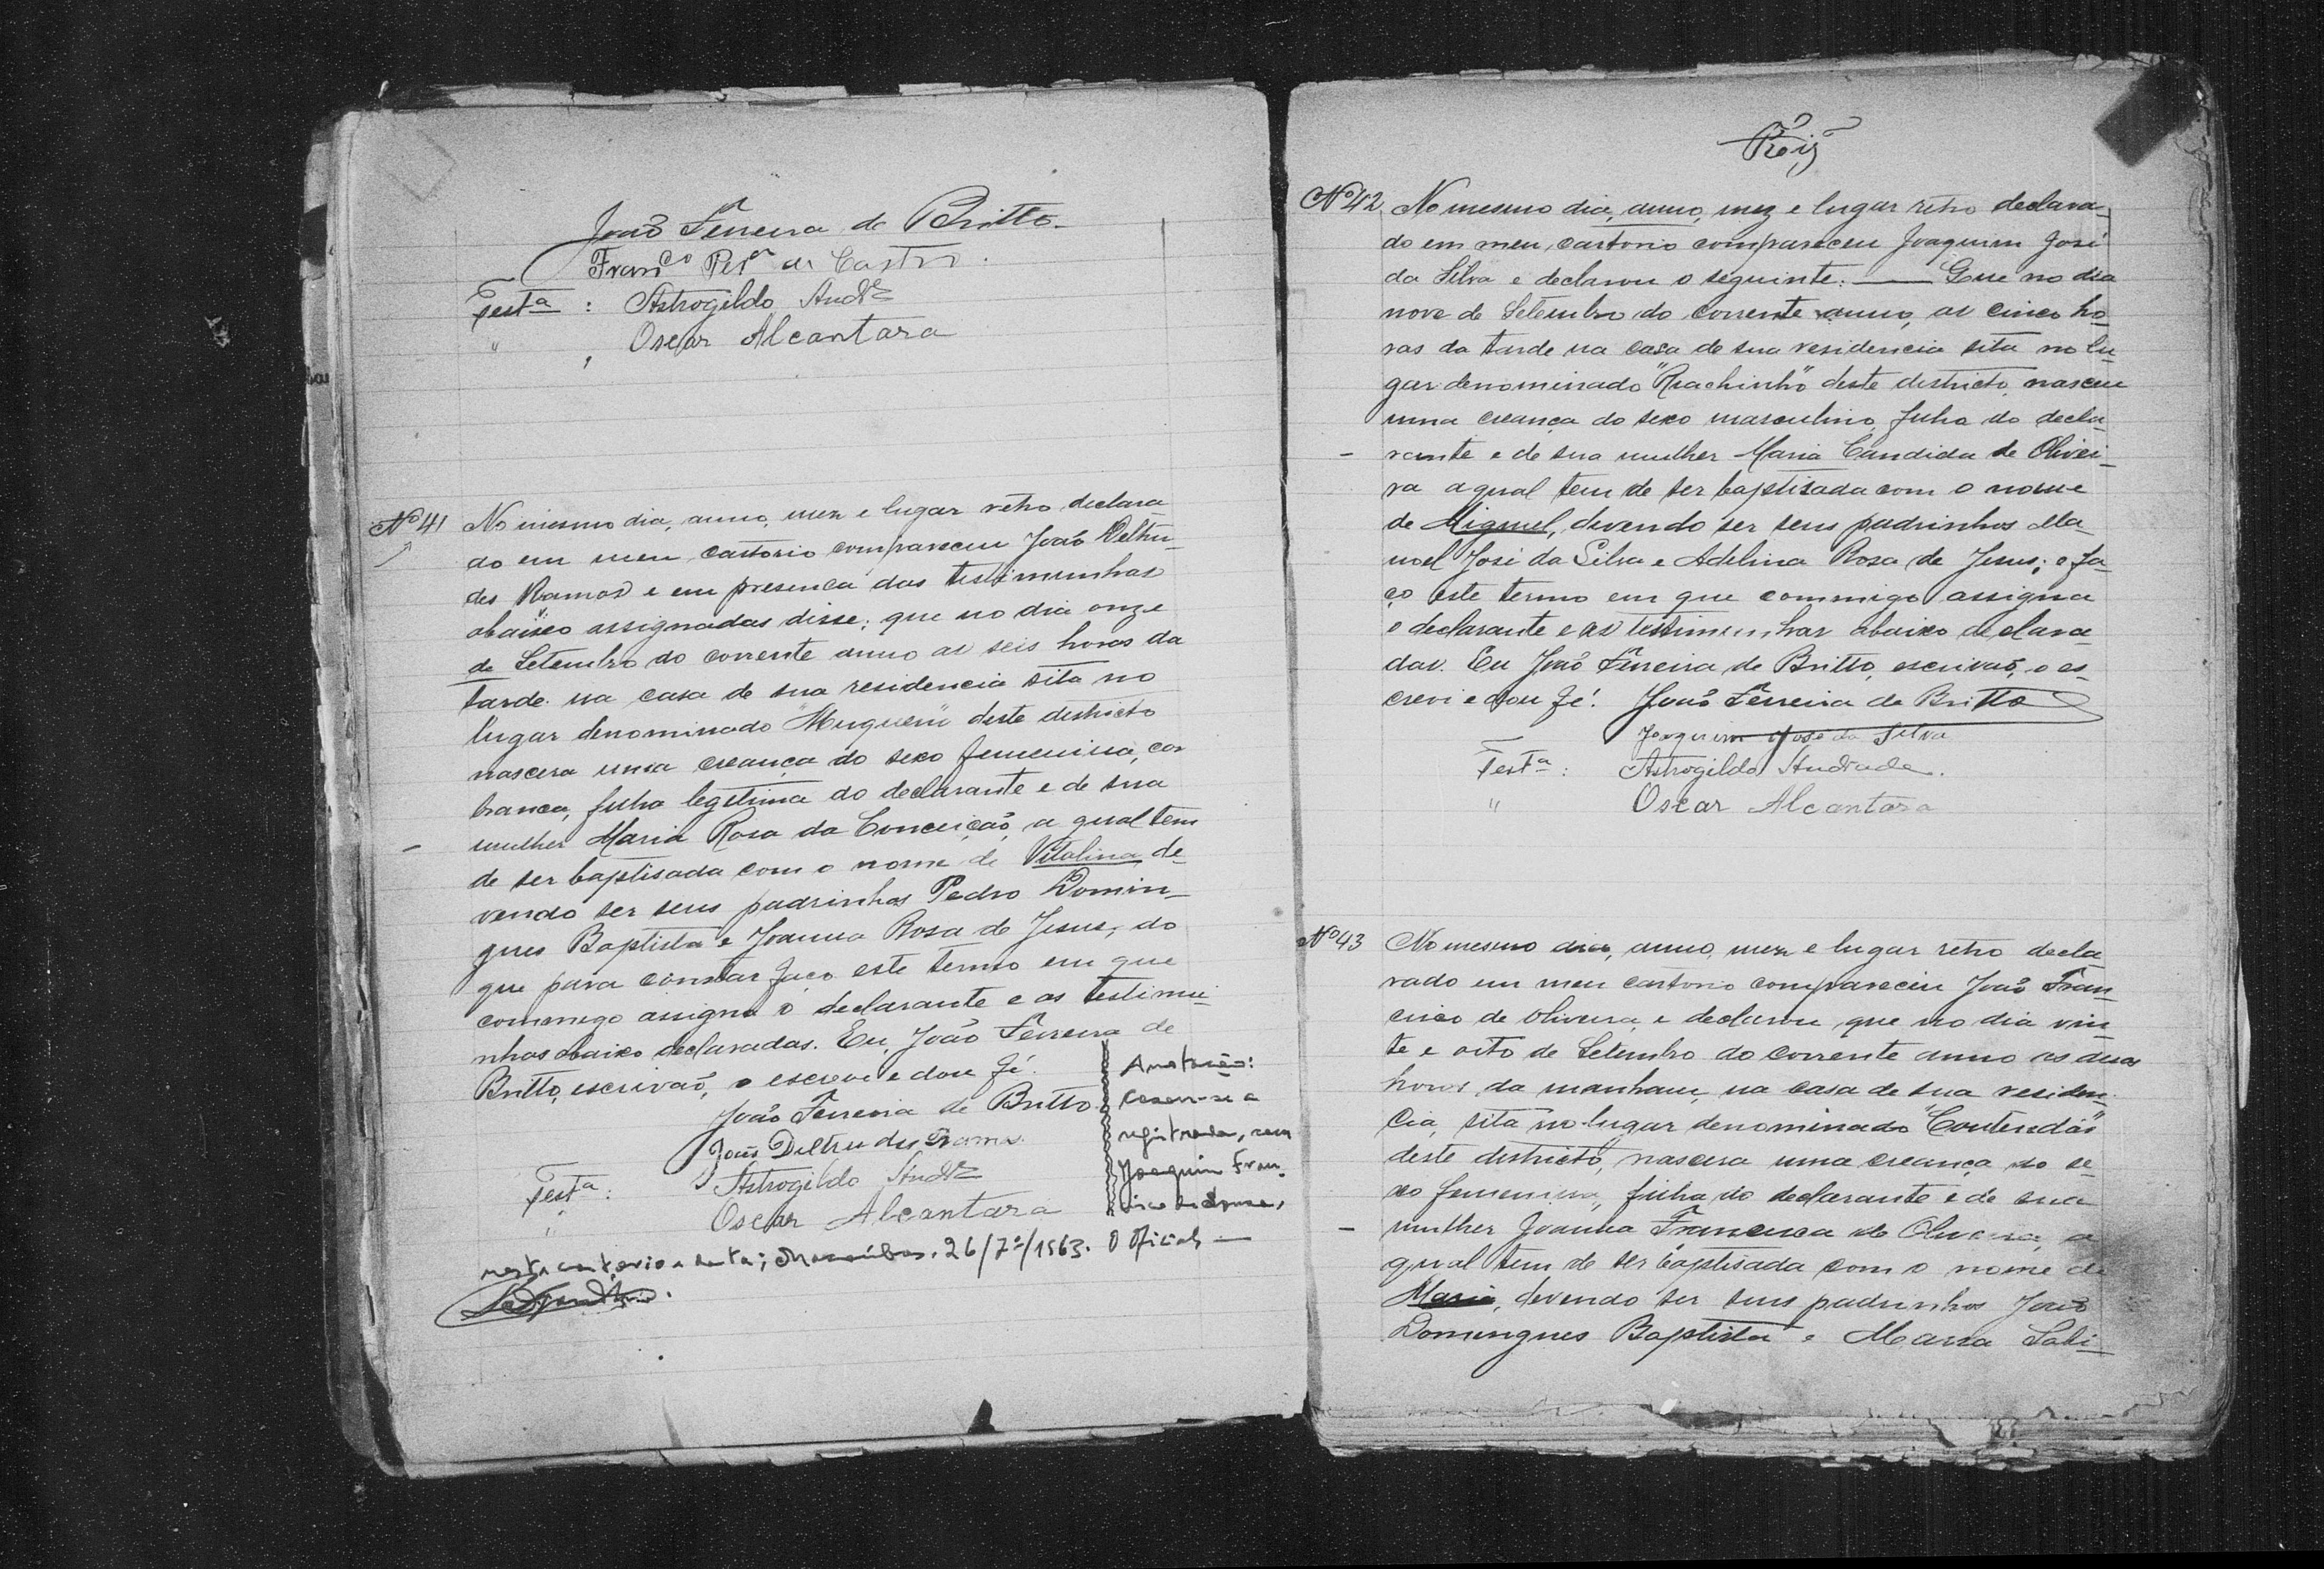 João Ferreira de Britto
Fran.co Per.a de Castro.
Test.a : Astrogildo And.e
" , Oscar Alcantara
Nº 41 No mesmo dia, anno, mez e lugar retro declara-
do em meu cartorio compareceu João Deltru-
des Ramos e em presença das testimunhas
abaixo assignadas disse; que no dia onze
de Setembro do corrente anno as seis horas da
tarde na casa de sua residencia sita no
lugar denominado "Muquem" deste districto
nascera uma creança do sexo femenina, cor
branca, filha legitima do declarante e de sua
mulher Maria Rosa da Conceição, a qual tem
de ser baptisada com o nome de Vitalina, de-
vendo ser seus padrinhos Pedro Domin-
gues Baptista e Joanna Rosa de Jesus, do
que para constar faço este termo em que
commigo assigna o declarante e as testimu-
nhas abaixo declaradas. Eu, João Ferreira de
Britto, escrivaõ, o escrevi e dou fé.
João Ferreira de Britto
João Deltrudes Ramos
Test.a : Astrogildo And.e
" Oscar Alcantara
Anotação:
Casou-se a
registrada, com
Joaquim Fran-
cisco de
nest. cartorio e data; Macaúbas. 26/7º/1963. O Oficial —
Reis
Nº 42 No mesmo dia, anno, mez e lugar retro declara-
do em meu cartorio compareceu Joaquim José
da Silva e declarou o seguinte: — Que no dia
nove de Setembro do corrente anno, as cinco ho-
ras da tarde na casa de sua residencia sita no lu-
gar denominado "Riachinho" deste districto, nasceu
uma creança do sexo masculino, filha do decla-
rante e de sua mulher Maria Candida de Olivei-
ra a qual tem de ser baptisada com o nome
de Miguel, devendo ser seus padrinhos Ma-
noel José da Silva e Adelina Rosa de Jesus; e fa-
ço este termo em que commigo assigna
o declarante e as testimunhas abaixo declara
das. Eu João Ferreira de Britto, escrivaõ, o es-
crevi e dou fé. João Ferreira de Britto
Joaquim José da Silva
Test.a : Astrogildo Andrade.
" Oscar Alcantara
Nº 43 No mesmo dia, anno, mez e lugar retro decla
rado em meu cartorio compareceu João Fran-
cisco de Oliveira, e declarou que no dia vin
te e oito de Setembro do corrente anno as duas
horas da manham, na casa de sua residen-
cia, sita no lugar denominado "Contendas"
deste districto, nascera uma creança do se-
xo femenina, filha do declarante e de sua
mulher Joanna Francisca de Oliveira, a
qual tem de ser baptisada com o nome de
Maria, devendo ser seus padrinhos João
Domingues Baptista e Maria Sabi-